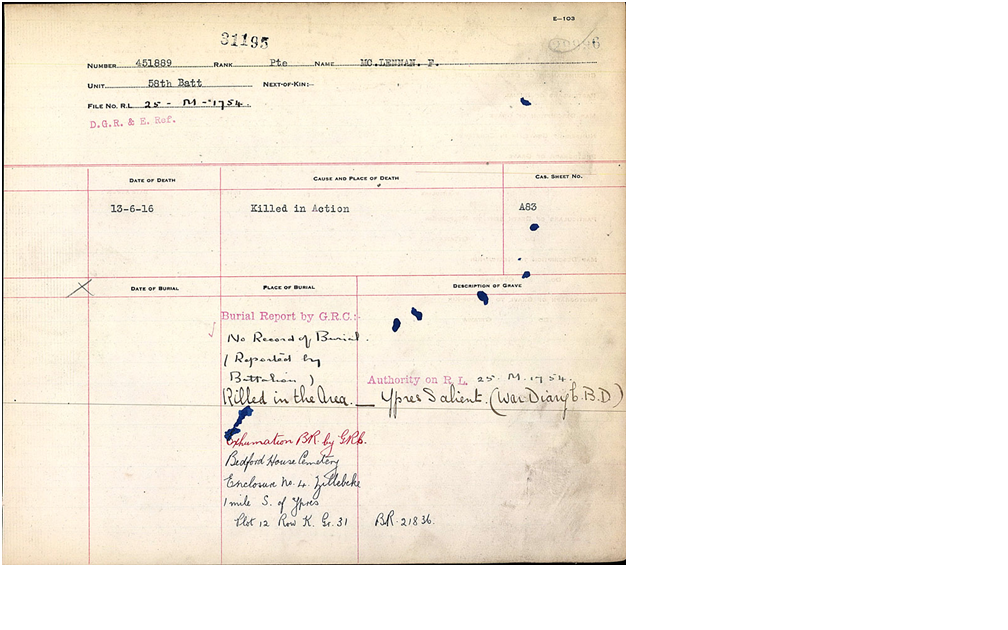 E—103
31195
29996
NUMBER 451889 RANK Pte NAME MC.LENNAN. F.
UNIT 58th Batt NEXT-OF-KIN:—
FILE NO. R.L. 25 - M - 1754.
D.G.R. & E. Ref.
DATE OF DEATH CAUSE AND PLACE OF DEATH CAS. SHEET NO.
13-6-16 Killed in Action A83
DATE OF BURIAL PLACE OF BURIAL DESCRIPTION OF GRAVE
Burial Report by G.R.C:-
No Record of Burial.
(Reported by
Battalion)
Authority on R.L. 25. M. 1754.
Killed in the Area. — Ypres Salient. (War Diary B.D)
Exhumation BR. by GRC.
Bedford House Cemetery
Enclosure No. 4. Zillebeke
1 mile S. of Ypres
Plot 12 Row K. Gr. 31 BR. 21836.